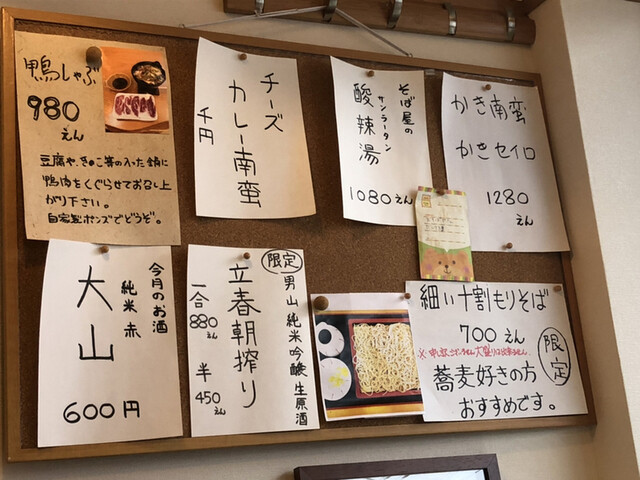 鴨しゃぶ
980
えん
豆腐や、きのこ等の入った鍋に
鴨肉をくぐらせてお召し上
がり下さい。
自家製ポンズでどうぞ。
チーズ
カレー南蛮
千円
そば屋の
サンラータン
酸辣湯
1080えん
かき南蛮
かきセイロ
1280
えん
今月のお酒
純米 赤
大山
600円
限定
男山 純米吟醸 生原酒
立春朝搾り
一合 880えん
半 450えん
細い十割もりそば
700えん
限定
蕎麦好きの方
おすすめです。